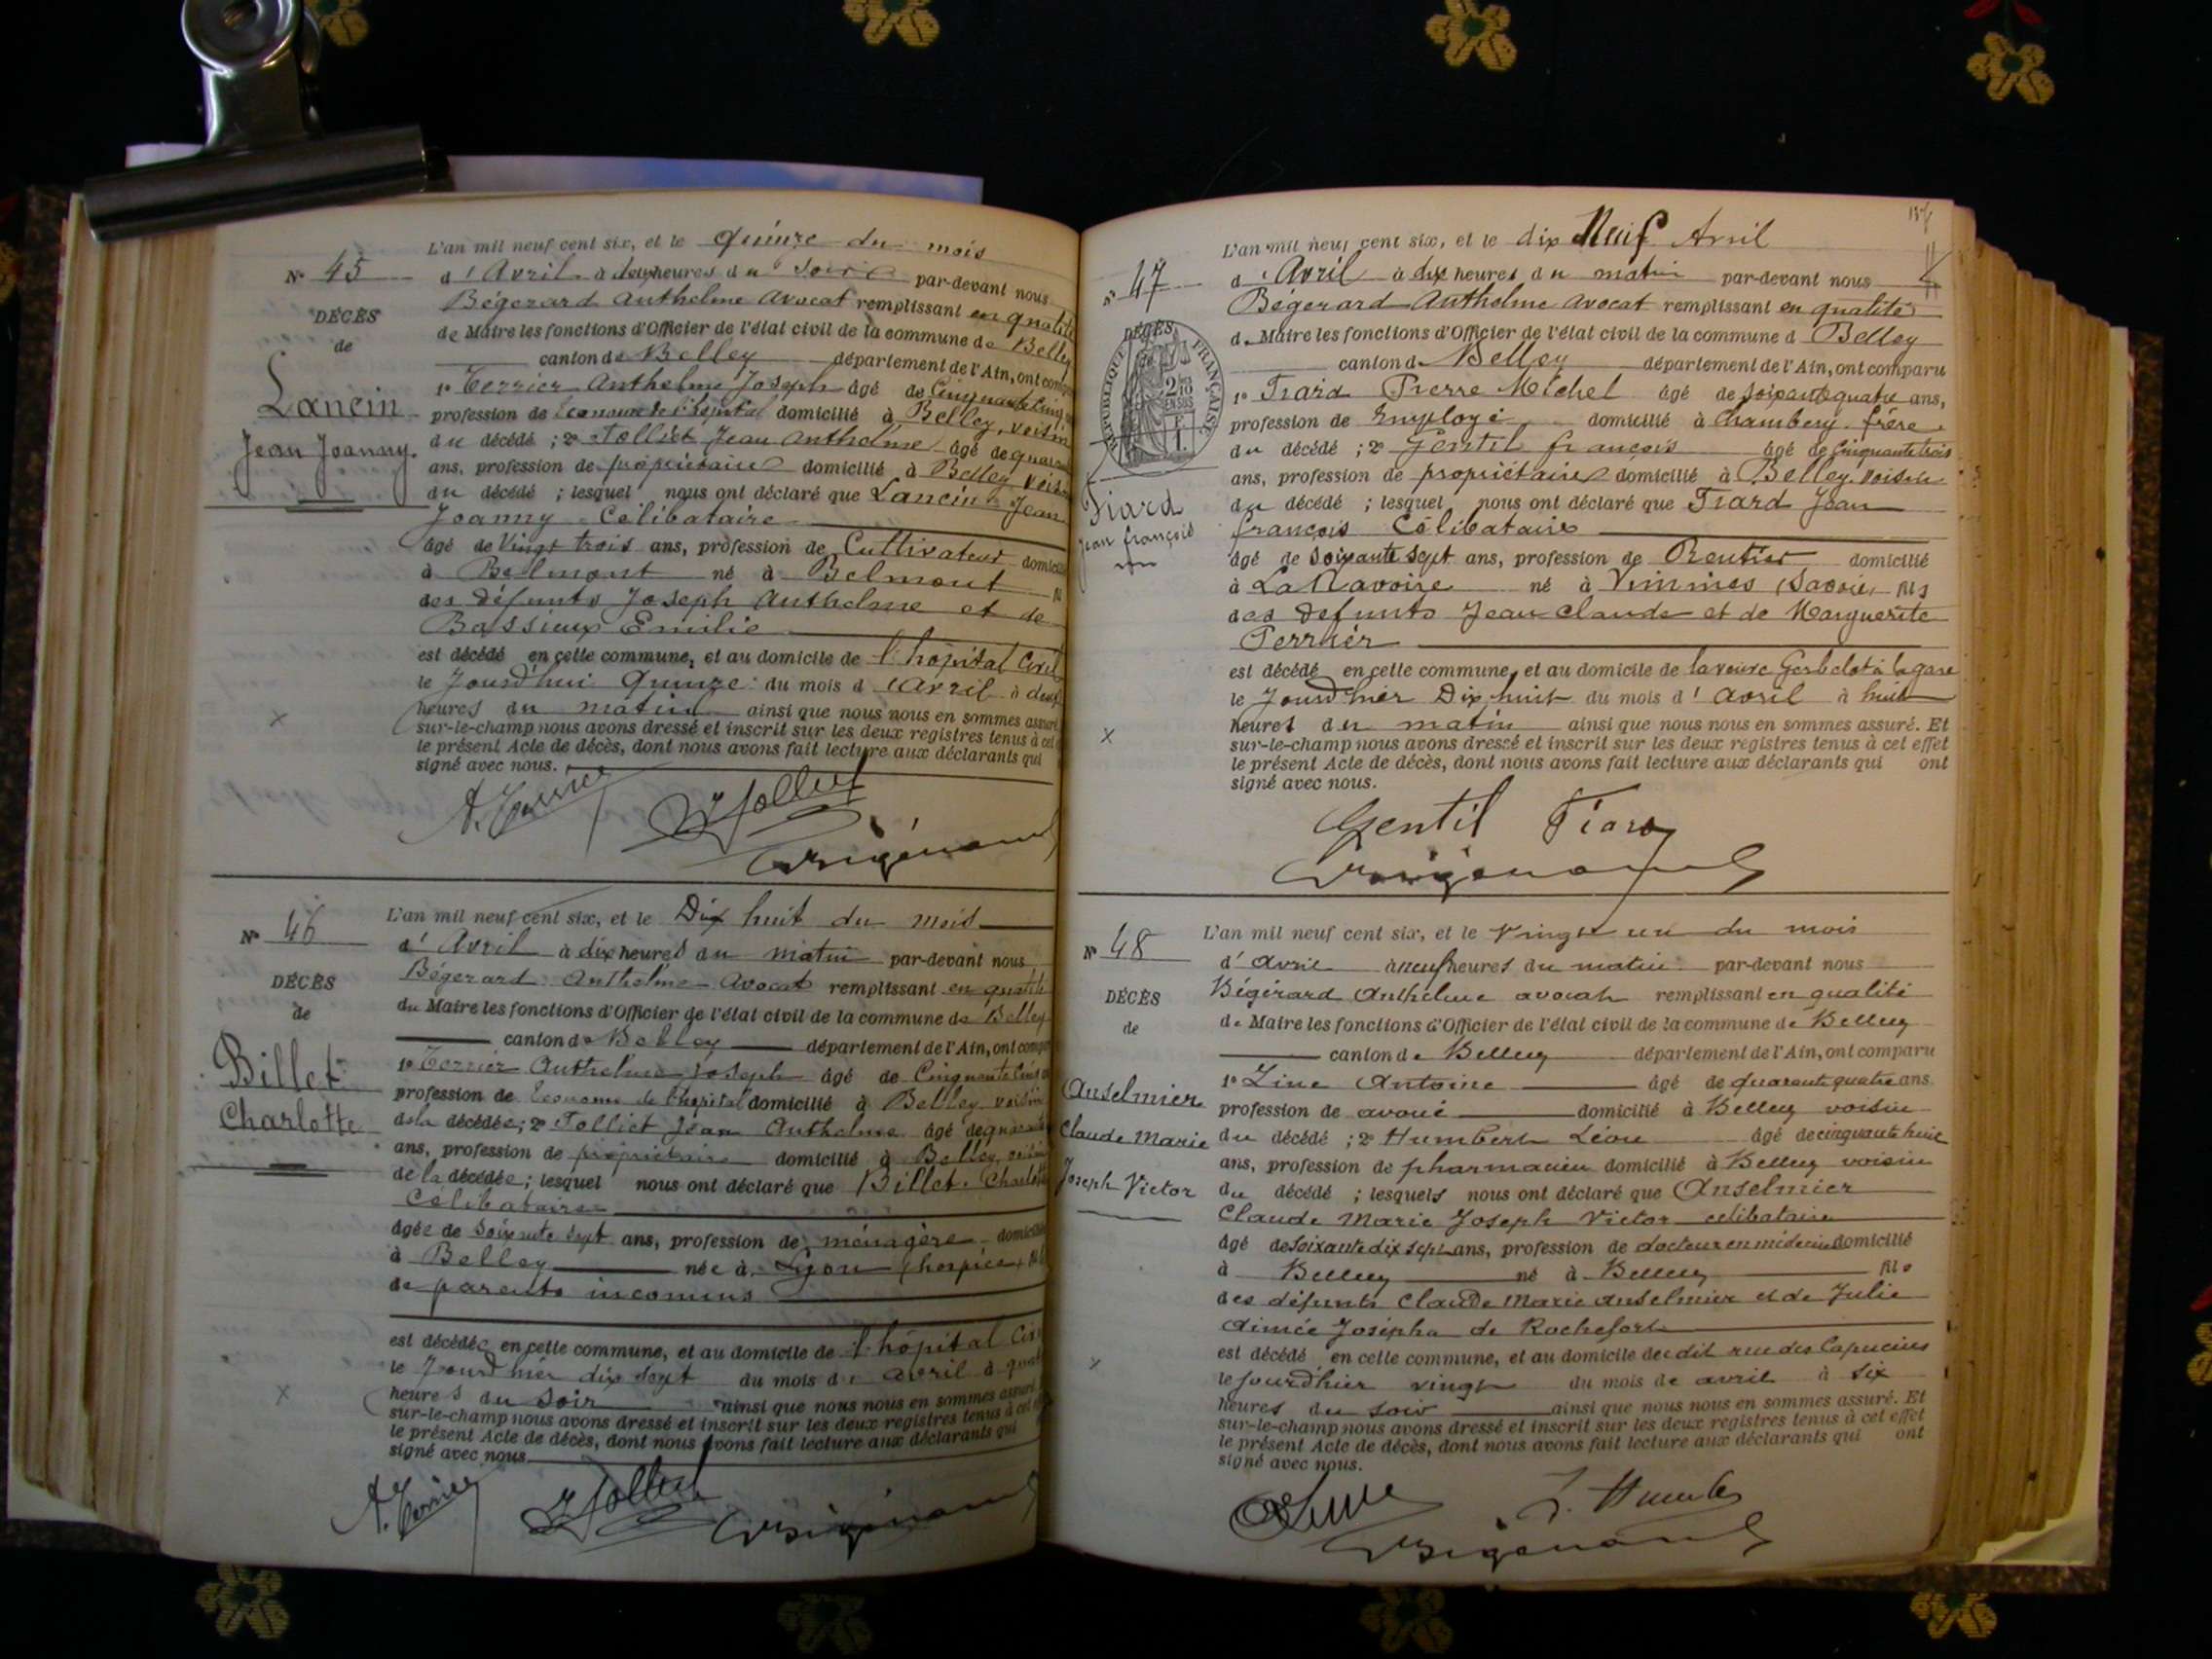 N° 45
DÉCÈS
de
Lancin
Jean Joanny.
L'an mil neuf cent six, et le Quinze du mois
d'Avril à deux heures du Soir par-devant nous
Bégerard Anthelme Avocat remplissant en qualité
de Maire les fonctions d'Officier de l'état civil de la commune de Belley
canton de Belley département de l'Ain, ont comparu
1° Terrier Anthelme Joseph âgé de Cinquante cinq
profession de Econome de l'hôpital domicilié à Belley, voisin
du décédé ; 2° Tolliet Jean Anthelme âgé de
ans, profession de propriétaire domicilié à Belley voisin
du décédé ; lesquel nous ont déclaré que Lancin Jean
Joanny Célibataire
âgé de Vingt trois ans, profession de Cultivateur domicilié
à Belmont né à Belmont
des défunts Joseph Anthelme et de
Bassieux Emilie
est décédé en cette commune, et au domicile de l'hôpital Civil
le Jourd'hui Quinze du mois d'Avril à deux
heures du matin ainsi que nous nous en sommes assuré
sur-le-champ nous avons dressé et inscrit sur les deux registres tenus à cet
le présent Acte de décès, dont nous avons fait lecture aux déclarants qui
signé avec nous.
A. Terrier Tolliet
N° 46
DÉCÈS
de
Billet
Charlotte
L'an mil neuf cent six, et le Dix huit du mois
d'Avril à dix heures du matin par-devant nous
Bégerard Anthelme Avocat remplissant en qualité
du Maire les fonctions d'Officier de l'état civil de la commune de Belley
canton de Belley département de l'Ain, ont comparu
1° Terrier Anthelme Joseph âgé de Cinquante cinq
profession de Econome de l'hôpital domicilié à Belley voisin
de la décédée ; 2° Tolliet Jean Anthelme âgé de quarante
ans, profession de propriétaire domicilié à Belley voisin
de la décédée ; lesquel nous ont déclaré que Billet Charlotte
Célibataire
âgée de soixante sept ans, profession de ménagère domicilié
à Belley née à Lyon (hospice)
de parents inconnus
est décédée en cette commune, et au domicile de l'hôpital Civil
le Jourd'hier dix sept du mois d'avril à
heures du Soir ainsi que nous nous en sommes assuré
sur-le-champ nous avons dressé et inscrit sur les deux registres tenus à cet
le présent Acte de décès, dont nous avons fait lecture aux déclarants qui
signé avec nous.
A. Terrier Tolliet
N° 47
DÉCÈS
RÉPUBLIQUE FRANÇAISE
Tiard
Jean françois
L'an mil neuf cent six, et le dix Neuf Avril
d'Avril à dix heures du matin par-devant nous
Bégerard Anthelme Avocat remplissant en qualité
de Maire les fonctions d'Officier de l'état civil de la commune d Belley
canton de Belley département de l'Ain, ont comparu
1° Tiard Pierre Michel âgé de soixante quatre ans,
profession de Employé domicilié à Chambery frère
du décédé ; 2° Gentil françois âgé de cinquante trois
ans, profession de propriétaire domicilié à Belley voisin
du décédé ; lesquel nous ont déclaré que Tiard Jean
françois Célibataire
âgé de soixante sept ans, profession de Rentier domicilié
à La Ravoire né à Vimines (Savoie) fils
des Défunts Jean Claude et de Marguerite
Perrier
est décédé en cette commune, et au domicile de la veuve Gerbelot à la gare
le Jourd'hier Dix huit du mois d'avril à huit
heures du matin ainsi que nous nous en sommes assuré. Et
sur-le-champ nous avons dressé et inscrit sur les deux registres tenus à cet effet
le présent Acte de décès, dont nous avons fait lecture aux déclarants qui ont
signé avec nous.
Gentil Tiard
N° 48
DÉCÈS
de
Anselmier
Claude Marie
Joseph Victor
L'an mil neuf cent six, et le Vingt un du mois
d'avril à neuf heures du matin par-devant nous
Bégérard Anthelme avocat remplissant en qualité
de Maire les fonctions d'Officier de l'état civil de la commune de Belley
canton de Belley département de l'Ain, ont comparu
1° Zine Antoine âgé de quarante quatre ans
profession de avoué domicilié à Belley voisin
du décédé ; 2° Humbert Léon âgé de cinquante huit
ans, profession de pharmacien domicilié à Belley voisin
du décédé ; lesquels nous ont déclaré que Anselmier
Claude Marie Joseph Victor célibataire
âgé de soixante dix sept ans, profession de docteur en médecine domicilié
à Belley né à Belley fils
des défunts Claude Marie Anselmier et de Julie
Aimée Josépha de Rochefort
est décédé en cette commune, et au domicile du dit rue des Capucins
le jourd'hier vingt du mois de avril à six
heures du soir ainsi que nous nous en sommes assuré. Et
sur-le-champ nous avons dressé et inscrit sur les deux registres tenus à cet effet
le présent Acte de décès, dont nous avons fait lecture aux déclarants qui ont
signé avec nous.